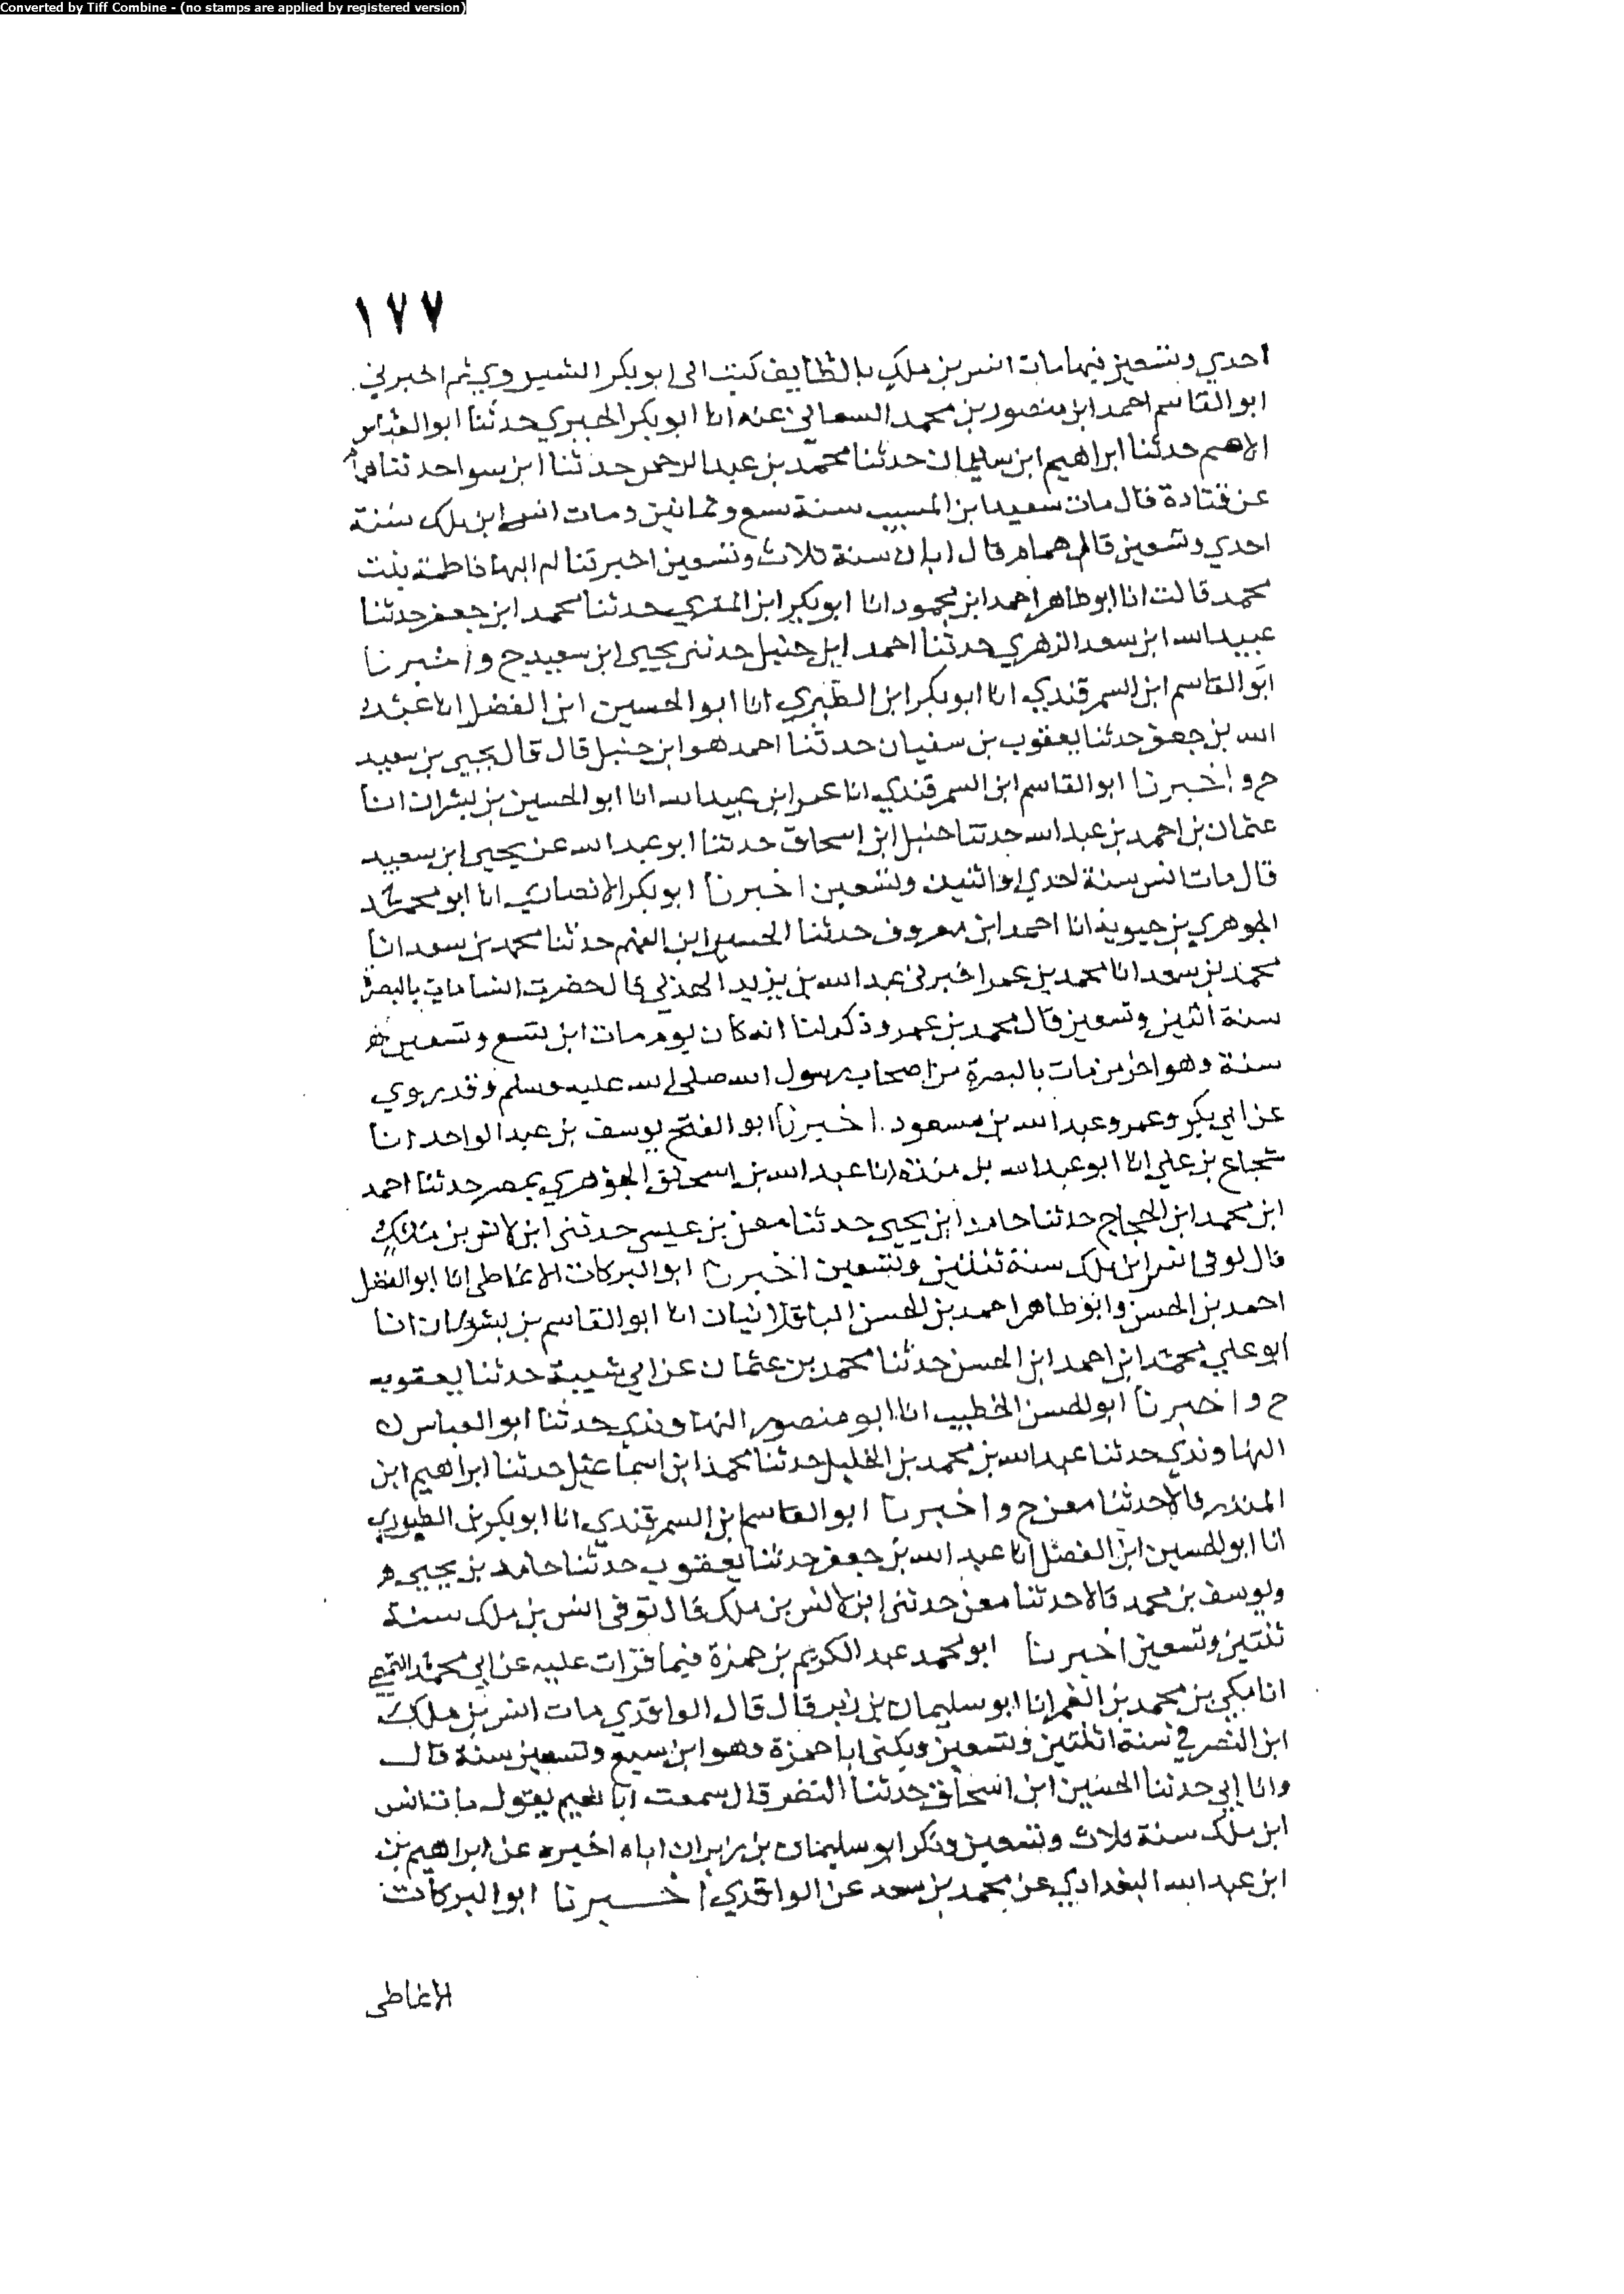 Converted by Tiff Combine - (no stamps are applied by registered version)
١٧٧
احدي وتسعين فيها مات انس بن ملك بالطايف كتب الى ابو بكر الشيروي ثم اخبرني
ابو القاسم احمد ابن منصور بن محمد السمعاني عنه انا ابو بكر الحيري حدثنا ابو العباس
الاصم حدثنا ابراهيم ابن سليمان حدثنا محمد بن عبد الرحمن حدثنا ابن سوا حدثنا همام
عن قتادة قال مات سعيد ابن المسيب سنة تسع وثمانين ومات انس ابن ملك سنة
احدي وتسعين قال همام قال ابان سنة ثلاث وتسعين اخبرتنا ام البها فاطمة بنت
محمد قالت انا ابو طاهر احمد ابن محمود انا ابو بكر ابن المقري حدثنا محمد ابن جعفر حدثنا
عبيد الله ابن سعد الزهري حدثنا احمد ابن حنبل حدثني يحيى ابن سعيد ح واخبرنا
ابو القاسم ابن السمرقندي انا ابو بكر ابن الطبري انا ابو الحسين ابن الفضل انا عبد
الله بن جعفر حدثنا يعقوب بن سفيان حدثنا احمد هو ابن حنبل قال قال يحيى بن سعيد
ح واخبرنا ابو القاسم ابن السمرقندي انا عمر ابن عبيد الله انا ابو الحسين بن بشران انا
عثمان بن احمد بن عبد الله حدثنا حنبل ابن اسحاق حدثنا ابو عبد الله عن يحيى ابن سعيد
قال مات انس سنة احدي او اثنين وتسعين اخبرنا ابو بكر الانصاري انا ابو محمد
الجوهري بن حيوية انا احمد ابن معروف حدثنا الحسين ابن الفهم حدثنا محمد بن سعد انا
محمد بن سعد انا محمد بن عمر اخبرني عبد الله بن يزيد الهذلي قال حضرت انسا مات بالبصرة
سنة اثنين وتسعين قال محمد بن عمر وذكر لنا انه كان يوم مات ابن تسع وتسعين
سنة وهو اخر من مات بالبصرة من اصحاب رسول الله صلى الله عليه وسلم وقد روي
عن ابي بكر وعمر وعبد الله بن مسعود. اخبرنا ابو الفتح يوسف بن عبد الواحد انا
شجاع بن علي انا ابو عبد الله بن منده انا عبد الله بن اسحاق الجوهري بمصر حدثنا احمد
ابن محمد ابن الحجاج حدثنا حامد ابن يحيى حدثنا معن بن عيسى حدثني ابن لانس بن ملك
قال توفي انس ابن ملك سنة ثنتين وتسعين اخبرنا ابو البركات الانماطي انا ابو الفضل
احمد بن الحسن وابو طاهر احمد بن الحسن الباقلانيان انا ابو القاسم بن بشران انا
ابو علي محمد ابن احمد ابن الحسن حدثنا محمد بن عثمان عن ابي شيبة حدثنا يعقوب
ح واخبرنا ابو الحسن الخطيب انا ابو منصور النهاوندي حدثنا ابو العباس
النهاوندي حدثنا عبد الله بن محمد بن الخليل حدثنا محمد ابن اسماعيل حدثنا ابراهيم ابن
المنذر قالا حدثنا معن ح واخبرنا ابو القاسم ابن السمرقندي انا ابو بكر بن الطبري
انا ابو الحسين ابن الفضل انا عبد الله بن جعفر حدثنا يعقوب حدثنا حامد بن يحيى
ويوسف بن محمد قالا حدثنا معن حدثني ابن لانس بن ملك قال توفي انس بن ملك سنة
ثنتين وتسعين اخبرنا ابو محمد عبد الكريم بن حمزة فيما قرات عليه عن ابي محمد التميمي
انا مكي بن محمد بن الغمر انا ابو سليمان بن زبر قال قال الواقدي مات انس بن ملك
ابن النضر في سنة اثنتين وتسعين ويكنى ابا حمزة وهو ابن سبع وتسعين سنة قال
وانا ابي حدثنا الحسين ابن اسحاق حدثنا النضر قال سمعت ابا نعيم يقول مات انس
ابن ملك سنة ثلاث وتسعين وذكر ابو سليمان بن زبر ان اباه اخبره عن ابراهيم بن
ابن عبد الله البغدادي عن محمد بن سعد عن الواقدي اخبرنا ابو البركات
الانماطي